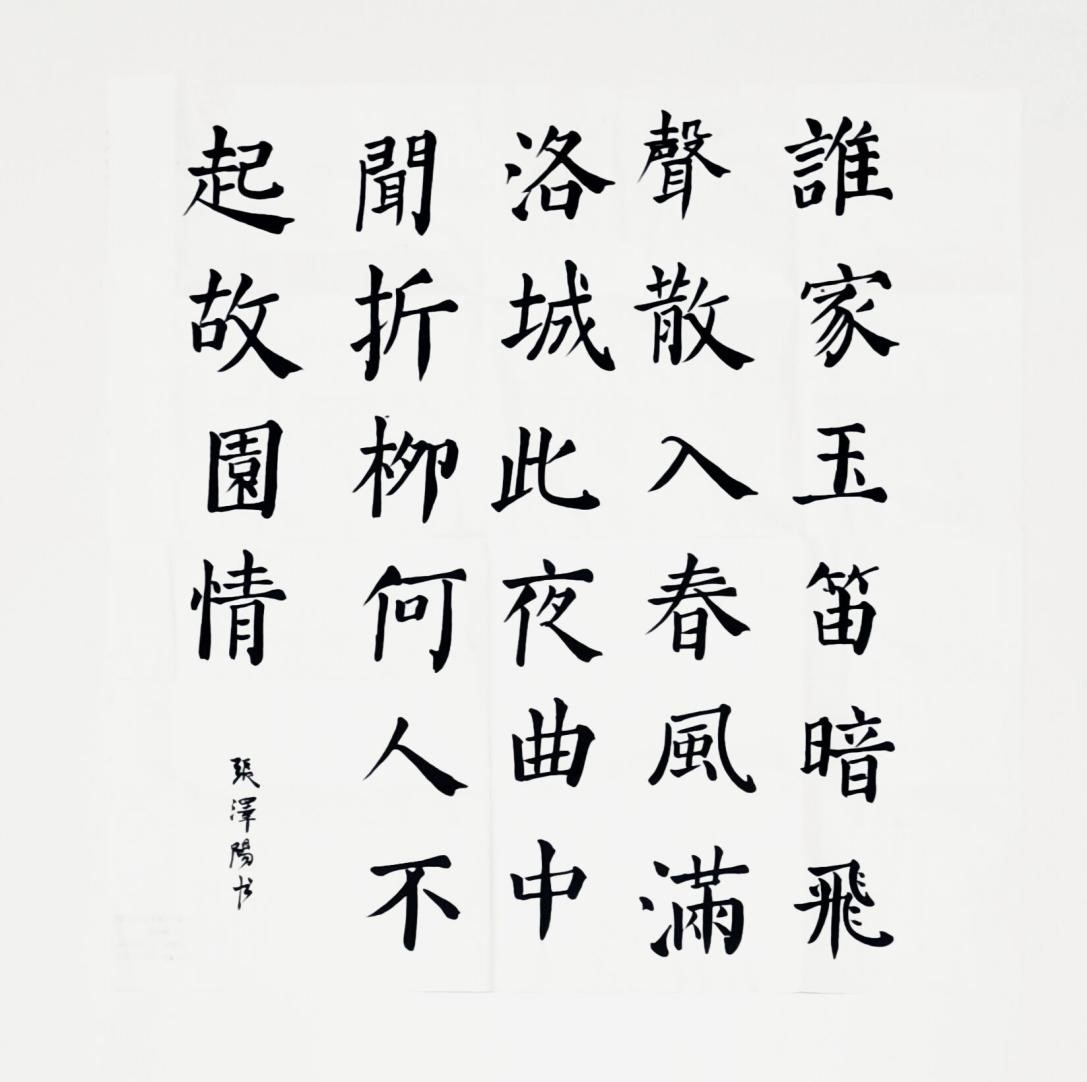 誰家玉笛暗飛
聲散入春風滿
洛城此夜曲中
聞折柳何人不
起故園情
張澤陽书